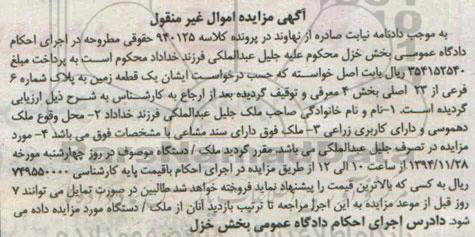 آگهی مزایده اموال غیر منقول
به موجب دادنامه نیابت صادره از نهاوند در پرونده کلاسه ۹۴۰۱۲۵ حقوقی مطروحه در اجرای احکام
دادگاه عمومی بخش خزل محکوم علیه جلیل عبدالملکی فرزند خداداد محکوم است به پرداخت مبلغ
۳۵۴۱۵۲۵۴۰ ریال بابت اصل خواسته که حسب درخواست ایشان یک قطعه زمین به پلاک شماره ۶
فرعی از ۲۳ اصلی بخش ۴ معرفی و توقیف گردیده بعد از ارجاع به کارشناس به شرح ذیل ارزیابی
گردیده است. ۱-نام و نام خانوادگی صاحب ملک جلیل عبدالملکی فرزند خداداد ۲- محل وقوع ملک
دهموسی و دارای کاربری زراعی ۳- ملک فوق دارای سند مشاعی با مشخصات فوق می باشد ۴- مورد
مزایده در تصرف جلیل عبدالملکی می باشد. مقرر گردید ملک / دستگاه موصوف در روز چهارشنبه مورخه
۱۳۹۴/۱۱/۲۸ از ساعت ۱۰ الی ۱۲ از طریق مزایده در اجرای احکام باقیمت پایه کارشناسی ۷۴۹۵۵۰۰۰۰
ریال به کسی که بالاترین قیمت را پیشنهاد نماید فروخته خواهد شد طالبین در صورت تمایل می توانند ۷
روز قبل از موعد مزایده به این اجرا مراجعه تا ترتیب بازدید آنان از ملک / دستگاه مورد مزایده داده می
شود. دادرس اجرای احکام دادگاه عمومی بخش خزل